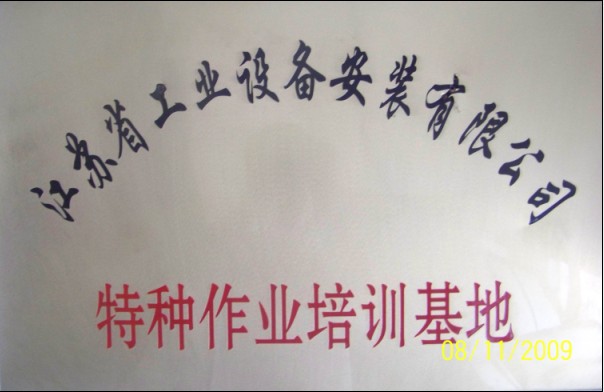 江苏省工业设备安装有限公司
特种作业培训基地
08/11/2009